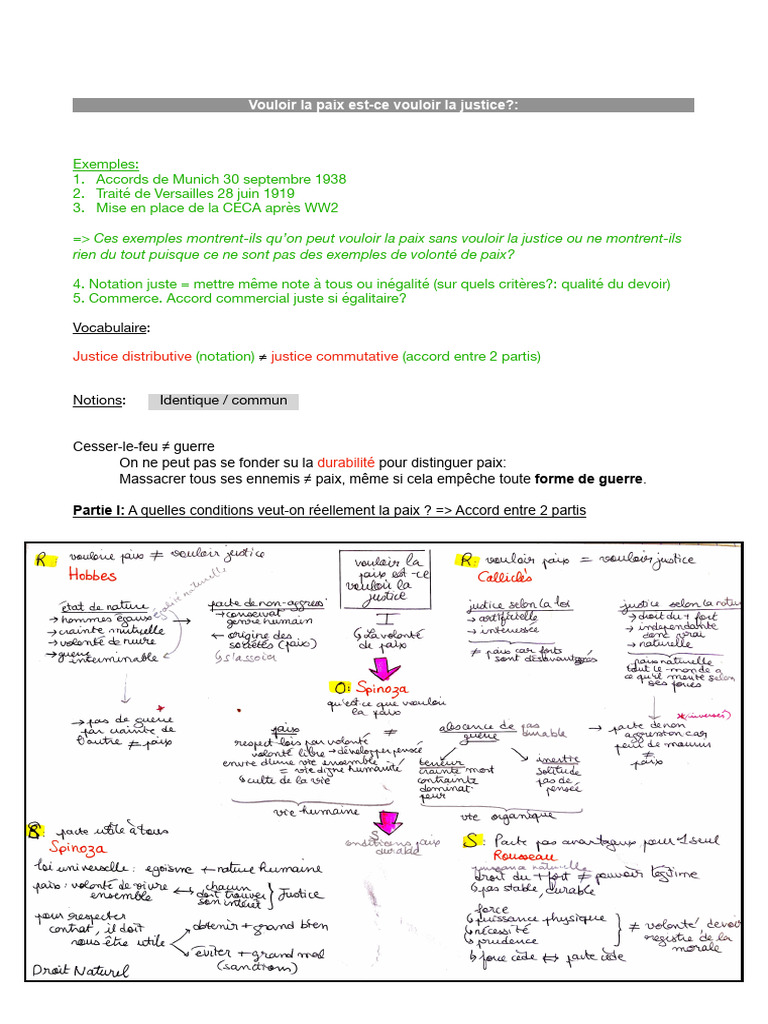 Vouloir la paix est-ce vouloir la justice?:
Exemples:
1. Accords de Munich 30 septembre 1938
2. Traité de Versailles 28 juin 1919
3. Mise en place de la CECA après WW2
=> Ces exemples montrent-ils qu'on peut vouloir la paix sans vouloir la justice ou ne montrent-ils
rien du tout puisque ce ne sont pas des exemples de volonté de paix?
4. Notation juste = mettre même note à tous ou inégalité (sur quels critères?: qualité du devoir)
5. Commerce. Accord commercial juste si égalitaire?
Vocabulaire:
Justice distributive (notation) ≠ justice commutative (accord entre 2 partis)
Notions: Identique / commun
Cesser-le-feu ≠ guerre
On ne peut pas se fonder su la durabilité pour distinguer paix:
Massacrer tous ses ennemis ≠ paix, même si cela empêche toute forme de guerre.
Partie I: A quelles conditions veut-on réellement la paix ? => Accord entre 2 partis
R: vouloir paix ≠ vouloir justice
Hobbes
égalité naturelle
état de nature
→ hommes égaux
→ crainte mutuelle
→ volonté de nuire
→ guerre
interminable
pacte de non-agress°
→ conservat°
genre humain
← origine des
sociétés (paix)
↳ s'associer
→ pas de guerre
par crainte de
l'autre ≠ paix
vouloir la
paix est-ce
vouloir la
justice
I
↳ La volonté
de paix
R: vouloir paix = vouloir justice
Calliclès
justice selon la loi
→ artificielle
→ intéressée
≠ paix car forts
sont désavantagés
justice selon la nature
→ droit du + fort
→ indépendante
donc vrai
→ naturelle
paix naturelle
tout le monde a
ce qu'il mérite selon
ses forces
(inverses)
→ pacte de non
agression car
peur de mourir
≠
paix
O: Spinoza
qu'est-ce que vouloir
la paix
paix ≠ absence de guerre
pas durable
respect lois par volonté
volonté libre → développer pensée
envie d'une vie ensemble
= vie digne humanité
↳ culte de la vie
vie humaine
terreur
crainte mort
contrainte
dominat°
peur
inertie
solitude
pas de
pensée
vie organique
S
conditions paix
durable
S: pacte utile à tous
Spinoza
loi universelle : egoïsme + nature humaine
paix : volonté de vivre ensemble ↔ chacun doit trouver son intérêt } Justice
pour respecter
contrat, il doit
nous être utile
obtenir + grand bien
éviter + grand mal
(sanctions)
Droit Naturel
S: Pacte pas avantageux pour 1 seul
Rousseau
droit du + fort ≠ pouvoir légitime
↳ pas stable, durable
force
↳ puissance physique
↳ nécessité
↳ prudence
≠ volonté, devoir
registre de la
morale
↳ force cède ↔ pacte cède